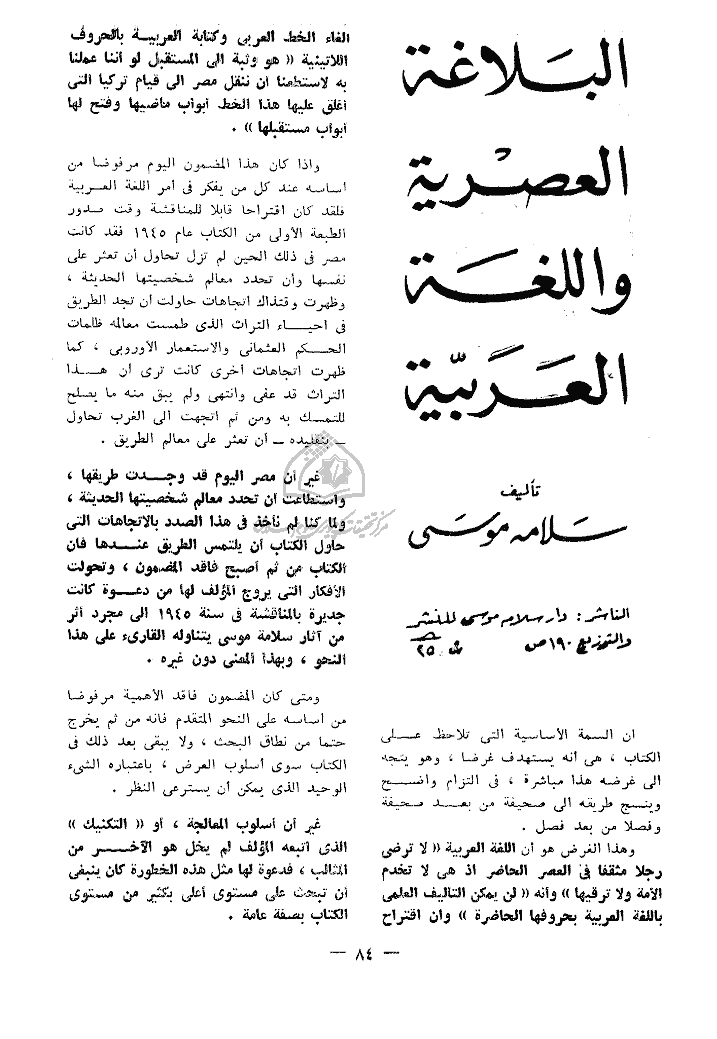 البلاغة
العصرية
واللغة
العربية
تأليف
سلامه موسى
الناشر : دار سلامه موسى للنشر
والتوزيع ١٩٠ ص
ان السمة الأساسية التى تلاحظ عـلى
الكتاب ، هى أنه يستهدف غرضا ، وهو يتجه
الى غرضه هذا مباشرة ، فى التزام واضـح
وينسج طريقه الى صحيفة من بعـد صحيفة
وفصلا من بعد فصل .
وهذا الغرض هو أن اللغة العربية « لا ترضى
رجلا مثقفا فى العصر الحاضر اذ هى لا تخدم
الأمة ولا ترقيها » وأنه « لن يمكن التأليف العلمى
باللغة العربية بحروفها الحاضرة » وان اقتراح
الغاء الخط العربى وكتابة العربية بالحروف
اللاتينية « هو وثبة الى المستقبل لو أننا عملنا
به لاستطعنا ان ننقل مصر الى قيام تركيا التى
أغلق عليها هذا الخط أبواب ماضيها وفتح لها
أبواب مستقبلها » .
واذا كان هذا المضمون اليوم مرفوضا من
أساسه عند كل من يفكر فى أمر اللغة العربية
فلقد كان اقتراحا قابلا للمناقشة وقت صدور
الطبعة الأولى من الكتاب عام ١٩٤٥ فقد كانت
مصر فى ذلك الحين لم تزل تحاول أن تعثر على
نفسها وأن تحدد معالم شخصيتها الحديثة ،
وظهرت وقتذاك اتجاهات حاولت أن تجد الطريق
فى احيـاء التراث الذى طمست معالمه ظلمات
الحـكم العثمانى والاستعمار الأوروبى ، كما
ظهرت اتجاهات أخرى كانت ترى أن هـذا
التراث قد عفى وانتهى ولم يبق منه ما يصلح
للتمسك به ومن ثم اتجهت الى الغرب تحاول
ـ بتقليده ـ أن تعثر على معالم الطريق .
غير أن مصر اليوم قد وجـدت طريقها ،
واستطاعت أن تحدد معالم شخصيتها الحديثة ،
ولما كنا لم نأخذ فى هذا الصدد بالاتجاهات التى
حاول الكتاب أن يلتمس الطريق عنـدها فان
الكتاب من ثم أصبح فاقد المضمون ، وتحولت
الأفكار التى يروج المؤلف لها من دعـوة كانت
جديرة بالمناقشة فى سنة ١٩٤٥ الى مجرد أثر
من آثار سلامة موسى يتناوله القارىء على هذا
النحو ، وبهذا المعنى دون غيره .
ومتى كان المضمون فاقد الأهمية مرفوضا
من أساسه على النحو المتقدم فانه من ثم يخرج
حتما من نطاق البحث ، ولا يبقى بعد ذلك فى
الكتاب سوى أسلوب العرض ، باعتباره الشىء
الوحيد الذى يمكن أن يسترعى النظر .
غير أن أسلوب المعالجة ، أو « التكنيك »
الذى اتبعه المؤلف لم يخل هو الآخـر من
المثالب ، فدعوة لها مثل هذه الخطورة كان ينبغى
أن تبحث على مستوى أعلى بكثير من مستوى
الكتاب بصفة عامة .
— ٨٤ —